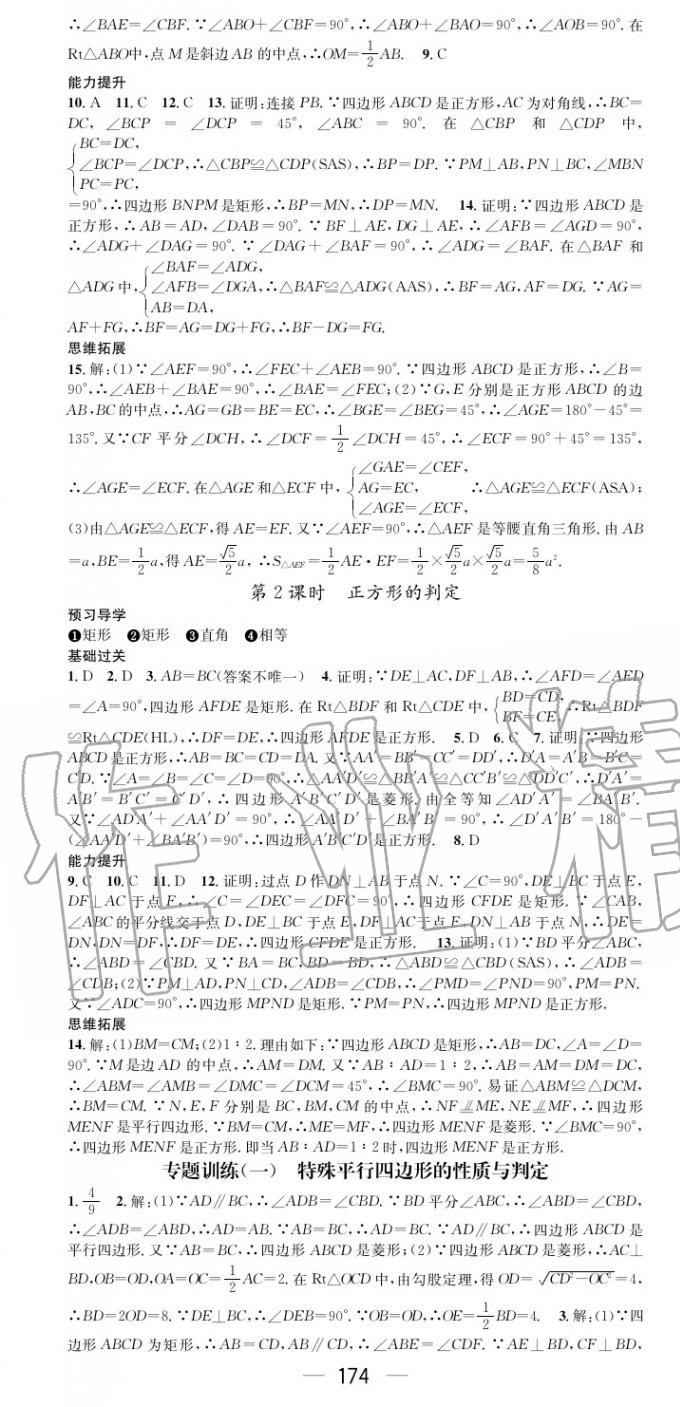 ∴∠BAE=∠CBF.∵∠ABO+∠CBF=90°,∴∠ABO+∠BAO=90°,∴∠AOB=90°.在
Rt△ABO中,点M是斜边AB的中点,∴OM=1/2 AB. 9.C
能力提升
10.A 11.C 12.C 13.证明:连接PB.∵四边形ABCD是正方形,AC为对角线,∴BC=
DC,∠BCP=∠DCP=45°,∠ABC=90°.在△CBP和△CDP中,
{BC=DC,
∠BCP=∠DCP,∴△CBP≌△CDP(SAS),∴BP=DP.∵PM⊥AB,PN⊥BC,∠MBN
PC=PC,
=90°,∴四边形BNPM是矩形,∴BP=MN,∴DP=MN. 14.证明:∵四边形ABCD是
正方形,∴AB=AD,∠DAB=90°.∵BF⊥AE,DG⊥AE,∴∠AFB=∠AGD=90°,
∴∠ADG+∠DAG=90°.∵∠DAG+∠BAF=90°,∴∠ADG=∠BAF.在△BAF和
{∠BAF=∠ADG,
△ADG中, ∠AFB=∠DGA,∴△BAF≌△ADG(AAS),∴BF=AG,AF=DG.∵AG=
AB=DA,
AF+FG,∴BF=AG=DG+FG,∴BF-DG=FG.
思维拓展
15.解:(1)∵∠AEF=90°,∴∠FEC+∠AEB=90°.∵四边形ABCD是正方形,∴∠B=
90°,∴∠AEB+∠BAE=90°,∴∠BAE=∠FEC;(2)∵G,E分别是正方形ABCD的边
AB,BC的中点,∴AG=GB=BE=EC,∴∠BGE=∠BEG=45°,∴∠AGE=180°-45°=
135°.又∵CF平分∠DCH,∴∠DCF=1/2∠DCH=45°,∴∠ECF=90°+45°=135°,
{∠GAE=∠CEF,
∴∠AGE=∠ECF.在△AGE和△ECF中, AG=EC, ∴△AGE≌△ECF(ASA);
∠AGE=∠ECF,
(3)由△AGE≌△ECF,得AE=EF.又∵∠AEF=90°,∴△AEF是等腰直角三角形.由AB
=a,BE=1/2 a,得AE=√5/2 a, ∴S△AEF=1/2 AE·EF=1/2×√5/2 a×√5/2 a=5/8 a².
第2课时 正方形的判定
预习导学
❶矩形 ❷矩形 ❸直角 ❹相等
基础过关
1.D 2.D 3.AB=BC(答案不唯一) 4.证明:∵DE⊥AC,DF⊥AB,∴∠AFD=∠AED
=∠A=90°,四边形AFDE是矩形.在Rt△BDF和Rt△CDE中,{BD=CD, BF=CE, ∴Rt△BDF
≌Rt△CDE(HL),∴DF=DE,∴四边形AFDE是正方形. 5.D 6.C 7.证明:∵四边形
ABCD是正方形,∴AB=BC=CD=DA.又∵AA′=BB′=CC′=DD′,∴D′A=A′B=B′C=
C′D.∵∠A=∠B=∠C=∠D=90°,∴△AA′D′≌△BB′A′≌△CC′B′≌△DD′C′,∴D′A′=
A′B′=B′C′=C′D′,∴四边形A′B′C′D′是菱形.由全等知∠AD′A′=∠BA′B′.
又∵∠AD′A′+∠AA′D′=90°,∴∠AA′D′+∠BA′B′=90°,∴∠D′A′B′=180°-
(∠AA′D′+∠BA′B′)=90°,∴四边形A′B′C′D′是正方形. 8.D
能力提升
9.C 10.C 11.D 12.证明:过点D作DN⊥AB于点N.∵∠C=90°,DE⊥BC于点E,
DF⊥AC于点F,∴∠C=∠DEC=∠DFC=90°,∴四边形CFDE是矩形.∵∠CAB,
∠ABC的平分线交于点D,DE⊥BC于点E,DF⊥AC于点F,DN⊥AB于点N,∴DE=
DN,DN=DF,∴DF=DE,∴四边形CFDE是正方形. 13.证明:(1)∵BD平分∠ABC,
∴∠ABD=∠CBD.又∵BA=BC,BD=BD,∴△ABD≌△CBD(SAS),∴∠ADB=
∠CDB;(2)∵PM⊥AD,PN⊥CD,∠ADB=∠CDB,∴∠PMD=∠PND=90°,PM=PN.
又∵∠ADC=90°,∴四边形MPND是矩形.∵PM=PN,∴四边形MPND是正方形.
思维拓展
14.解:(1)BM=CM;(2)1∶2.理由如下:∵四边形ABCD是矩形,∴AB=DC,∠A=∠D=
90°.∵M是边AD的中点,∴AM=DM.又∵AB∶AD=1∶2,∴AB=AM=DM=DC,
∴∠ABM=∠AMB=∠DMC=∠DCM=45°,∴∠BMC=90°.易证△ABM≌△DCM,
∴BM=CM.∵N,E,F分别是BC,BM,CM的中点,∴NF⫽ME,NE⫽MF,∴四边形
MENF是平行四边形.∵BM=CM,∴ME=MF,∴四边形MENF是菱形.∵∠BMC=90°,
∴四边形MENF是正方形.即当AB∶AD=1∶2时,四边形MENF是正方形.
专题训练(一) 特殊平行四边形的性质与判定
1.4/9 2.解:(1)∵AD∥BC,∴∠ADB=∠CBD.∵BD平分∠ABC,∴∠ABD=∠CBD,
∴∠ADB=∠ABD,∴AD=AB.∵AB=BC,∴AD=BC.∵AD∥BC,∴四边形ABCD是
平行四边形.又∵AB=BC,∴四边形ABCD是菱形;(2)∵四边形ABCD是菱形,∴AC⊥
BD,OB=OD,OA=OC=1/2 AC=2.在Rt△OCD中,由勾股定理,得OD=√(CD²-OC²)=4,
∴BD=2OD=8.∵DE⊥BC,∴∠DEB=90°.∵OB=OD,∴OE=1/2 BD=4. 3.解:(1)∵四
边形ABCD为矩形,∴AB=CD,AB∥CD,∴∠ABE=∠CDF.∵AE⊥BD,CF⊥BD,
— 174 —
作业精